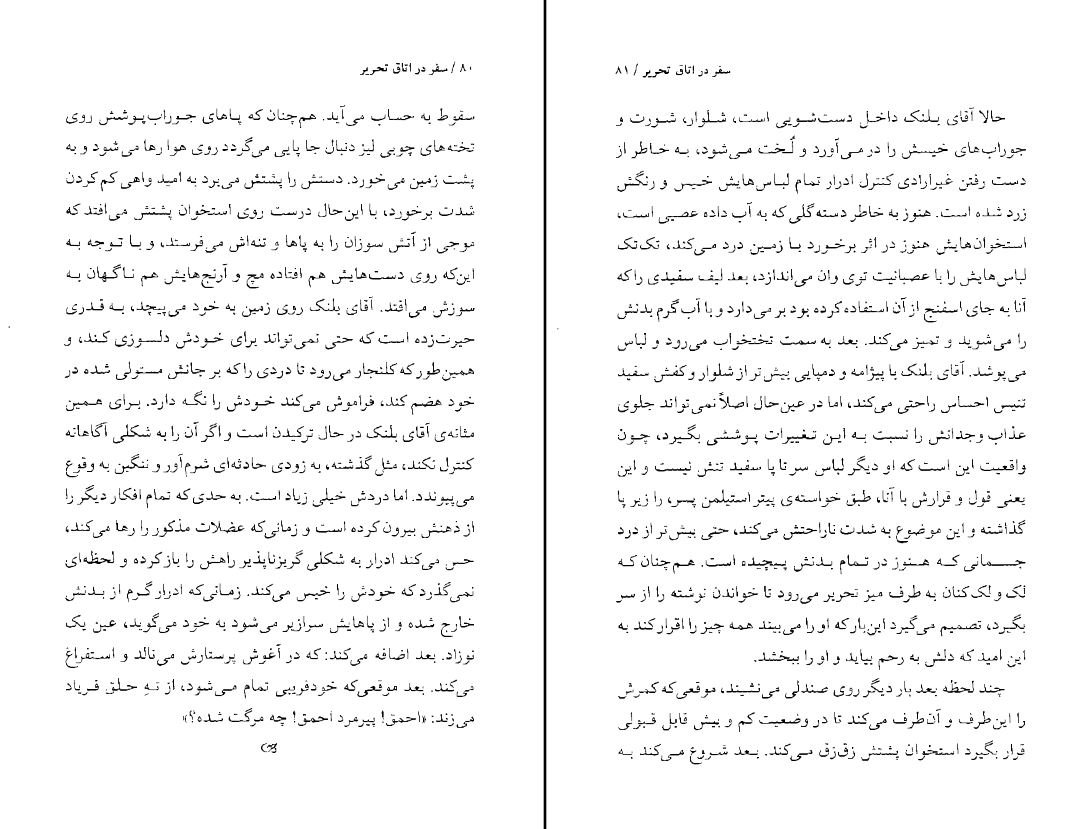 ۸۰ / سفر در اتاق تحریر
سقوط به حساب می‌آید. هم‌چنان که پاهای جوراب‌پوشش روی
تخته‌های چوبی لیز دنبال جا پایی می‌گردد روی هوا رها می‌شود و به
پشت زمین می‌خورد. دستش را پشتش می‌برد به امید واهی کم کردن
شدت برخورد، با این‌حال درست روی استخوان پشتش می‌افتد که
موجی از آتش سوزان را به پاها و تنه‌اش می‌فرستد، و با توجه به
این‌که روی دست‌هایش هم افتاده مچ و آرنج‌هایش هم ناگهان به
سوزش می‌افتد. آقای بلنک روی زمین به خود می‌پیچد، به قدری
حیرت‌زده است که حتی نمی‌تواند برای خودش دلسوزی کند، و
همین‌طور که کلنجار می‌رود تا دردی را که بر جانش مستولی شده در
خود هضم کند، فراموش می‌کند خودش را نگه دارد. برای همین
مثانه‌ی آقای بلنک در حال ترکیدن است و اگر آن را به شکلی آگاهانه
کنترل نکند، مثل گذشته، به زودی حادثه‌ای شرم‌آور و ننگین به وقوع
می‌پیوندد. اما دردش خیلی زیاد است. به حدی که تمام افکار دیگر را
از ذهنش بیرون کرده است و زمانی‌که عضلات مذکور را رها می‌کند،
حس می‌کند ادرار به شکلی گریزناپذیر راهش را باز کرده و لحظه‌ای
نمی‌گذرد که خودش را خیس می‌کند. زمانی‌که ادرار گرم از بدنش
خارج شده و از پاهایش سرازیر می‌شود به خود می‌گوید، عین یک
نوزاد. بعد اضافه می‌کند: که در آغوش پرستارش می‌نالد و استفراغ
می‌کند. بعد موقعی‌که خودفریبی تمام می‌شود، از تهِ حلق فریاد
می‌زند: «احمق! پیرمرد احمق! چه مرگت شده؟»
سفر در اتاق تحریر / ۸۱
حالا آقای بلنک داخل دست‌شویی است، شلوار، شورت و
جوراب‌های خیسش را در می‌آورد و لُخت می‌شود، به خاطر از
دست رفتن غیرارادی کنترل ادرار تمام لباس‌هایش خیس و رنگش
زرد شده است. هنوز به خاطر دسته‌گلی که به آب داده عصبی است،
استخوان‌هایش هنوز در اثر برخورد با زمین درد می‌کند، تک‌تک
لباس‌هایش را با عصبانیت توی وان می‌اندازد، بعد لیف سفیدی را که
آنا به جای اسفنج از آن استفاده کرده بود بر می‌دارد و با آب گرم بدنش
را می‌شوید و تمیز می‌کند. بعد به سمت تختخواب می‌رود و لباس
می‌پوشد. آقای بلنک با پیژامه و دمپایی بیش‌تر از شلوار و کفش سفید
تنیس احساس راحتی می‌کند، اما در عین‌حال اصلاً نمی‌تواند جلوی
عذاب وجدانش را نسبت به این تغییرات پوششی بگیرد، چون
واقعیت این است که او دیگر لباس سر تا پا سفید تنش نیست و این
یعنی قول و قرارش با آنا، طبق خواسته‌ی پیتر استیلمن پسر، را زیر پا
گذاشته و این موضوع به شدت ناراحتش می‌کند، حتی بیش‌تر از درد
جسمانی که هنوز در تمام بدنش پیچیده است. هم‌چنان که
لک و لک‌کنان به طرف میز تحریر می‌رود تا خواندن نوشته را از سر
بگیرد، تصمیم می‌گیرد این‌بار که او را می‌بیند همه چیز را اقرار کند به
این امید که دلش به رحم بیاید و او را ببخشد.
چند لحظه بعد بار دیگر روی صندلی می‌نشیند، موقعی‌که کمرش
را این‌طرف و آن‌طرف می‌کند تا در وضعیت کم و بیش قابل قبولی
قرار بگیرد استخوان پشتش زق‌زق می‌کند. بعد شروع می‌کند به